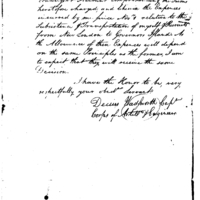 heretofore charged, and also the Expenses
incurred by our from No. 3 relative to the
of myself & Servant
from New London to Governors Island. As
the Allowance of these Expenses will depend
on the same Principles as the former, I am
to expect that they will receive the same
Decision.
I have the Honor to be, very
respectfully your Obt. Servant
Decius Wadsworth Capt.
Corps of Artill. & Engineers